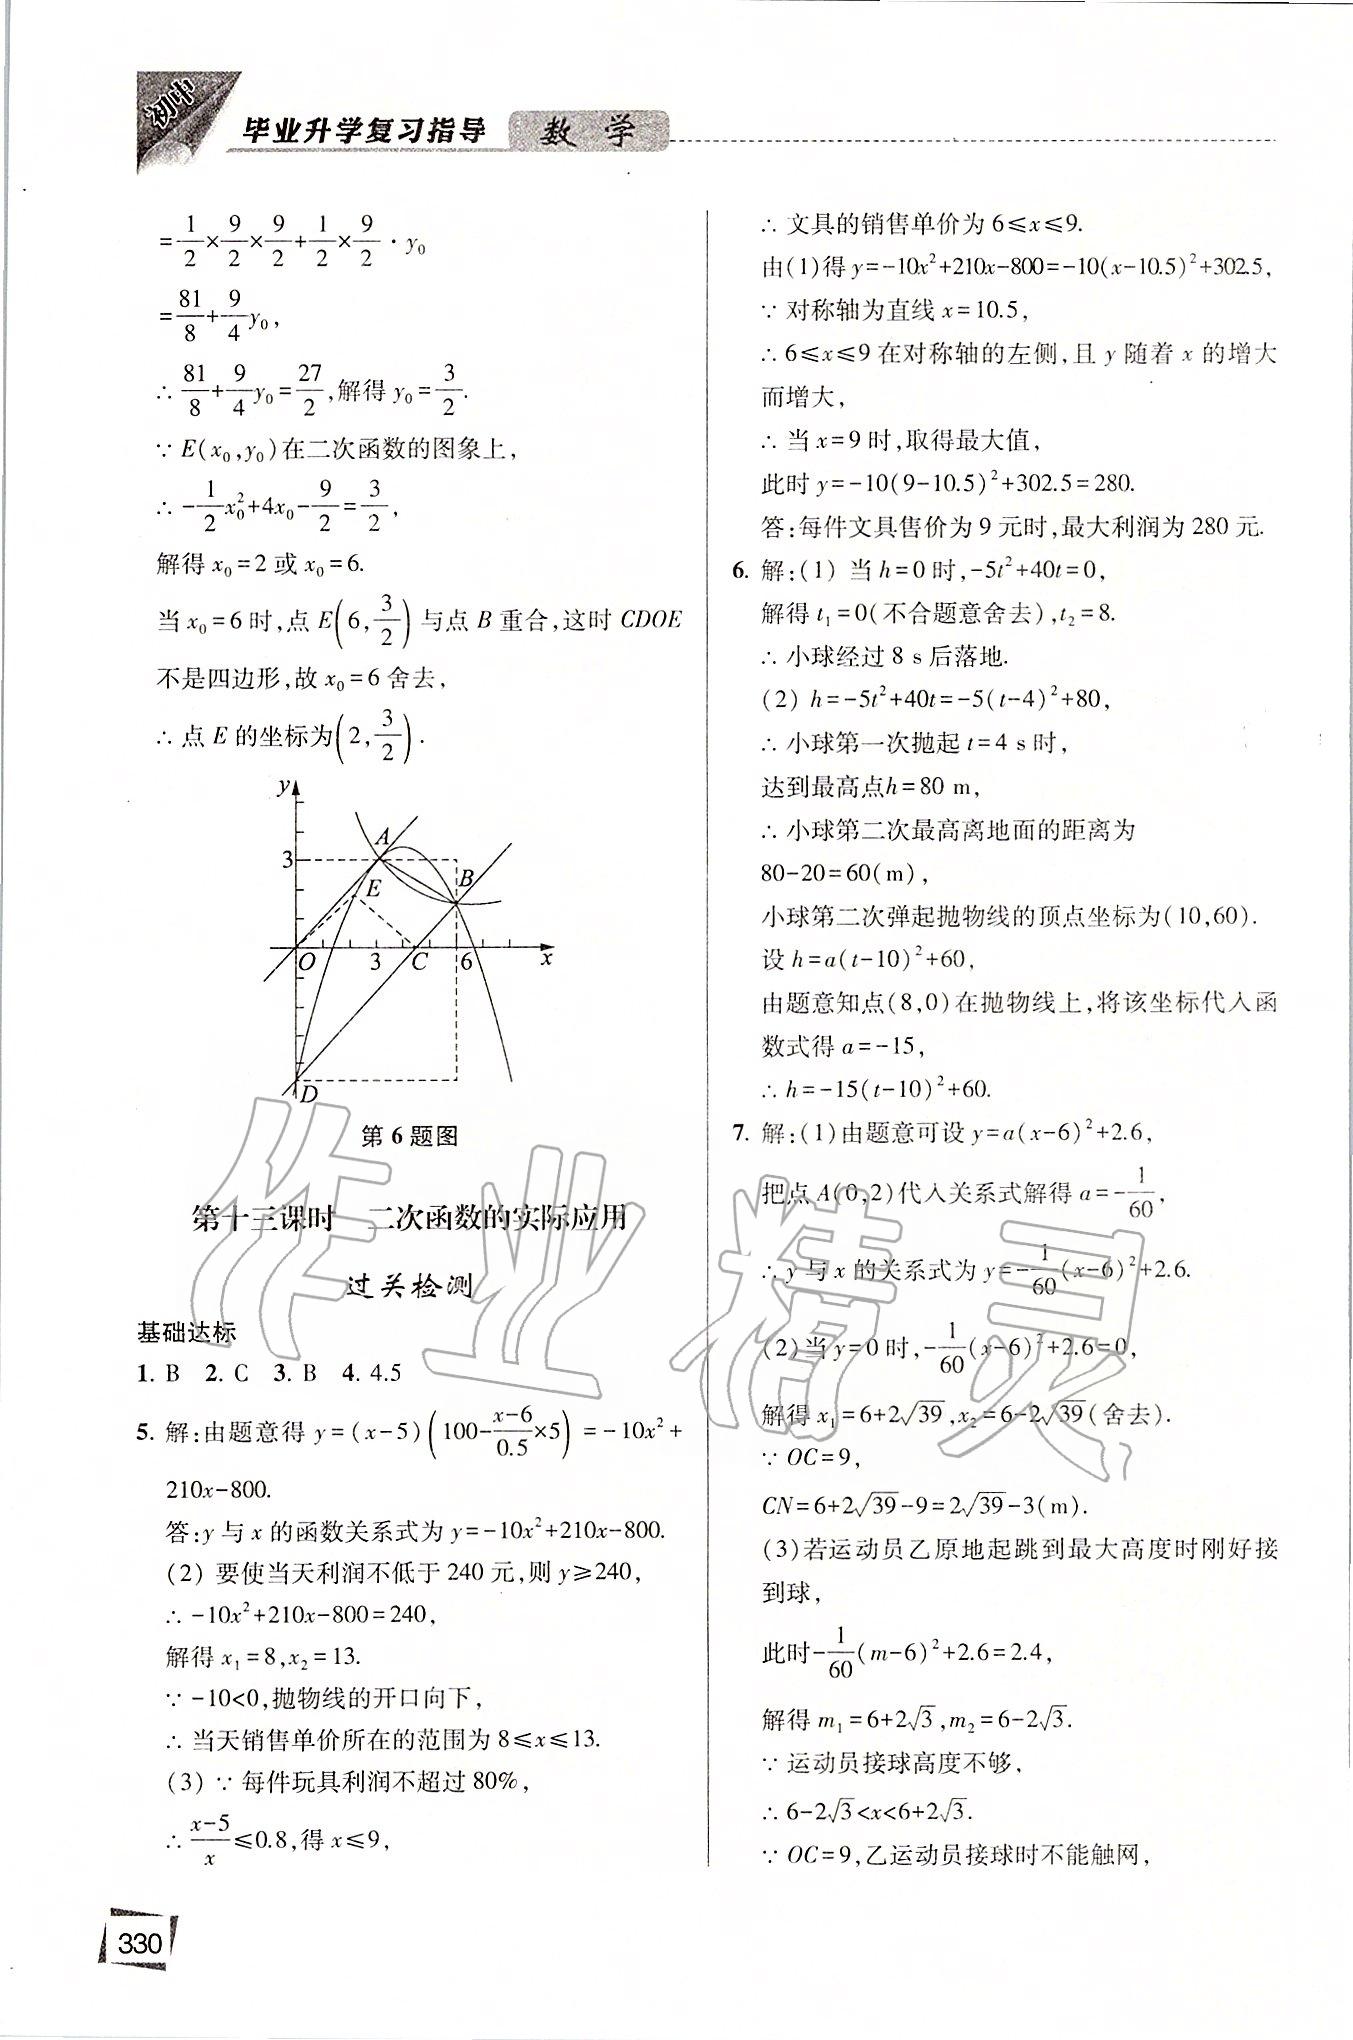 初中
毕业升学复习指导 数 学
=1/2×9/2×9/2+1/2×9/2·y₀
=81/8+9/4y₀,
∴81/8+9/4y₀=27/2,解得y₀=3/2.
∵E(x₀,y₀)在二次函数的图象上,
∴-1/2x₀²+4x₀-9/2=3/2,
解得x₀=2或x₀=6.
当x₀=6时,点E(6,3/2)与点B重合,这时CDOE
不是四边形,故x₀=6舍去,
∴点E的坐标为(2,3/2).
y
A
3
B
E
O 3 C 6 x
D
第6题图
第十三课时 二次函数的实际应用
过关检测
基础达标
1. B 2. C 3. B 4. 4.5
5. 解:由题意得y=(x-5)(100-(x-6)/0.5×5)=-10x²+
210x-800.
答:y与x的函数关系式为y=-10x²+210x-800.
(2) 要使当天利润不低于240元,则y≥240,
∴-10x²+210x-800=240,
解得x₁=8,x₂=13.
∵-10<0,抛物线的开口向下,
∴当天销售单价所在的范围为8≤x≤13.
(3) ∵每件玩具利润不超过80%,
∴(x-5)/x≤0.8,得x≤9,
∴文具的销售单价为6≤x≤9.
由(1)得y=-10x²+210x-800=-10(x-10.5)²+302.5,
∵对称轴为直线x=10.5,
∴6≤x≤9在对称轴的左侧,且y随着x的增大
而增大,
∴当x=9时,取得最大值,
此时y=-10(9-10.5)²+302.5=280.
答:每件文具售价为9元时,最大利润为280元.
6. 解:(1) 当h=0时,-5t²+40t=0,
解得t₁=0(不合题意舍去),t₂=8.
∴小球经过8 s后落地.
(2) h=-5t²+40t=-5(t-4)²+80,
∴小球第一次抛起t=4 s时,
达到最高点h=80 m,
∴小球第二次最高离地面的距离为
80-20=60(m),
小球第二次弹起抛物线的顶点坐标为(10,60).
设h=a(t-10)²+60,
由题意知点(8,0)在抛物线上,将该坐标代入函
数式得a=-15,
∴h=-15(t-10)²+60.
7. 解:(1)由题意可设y=a(x-6)²+2.6,
把点A(0,2)代入关系式解得a=-1/60,
∴y与x的关系式为y=-1/60(x-6)²+2.6.
(2)当y=0时,-1/60(x-6)²+2.6=0,
解得x₁=6+2√39,x₂=6-2√39(舍去).
∵OC=9,
CN=6+2√39-9=2√39-3(m).
(3)若运动员乙原地起跳到最大高度时刚好接
到球,
此时-1/60(m-6)²+2.6=2.4,
解得m₁=6+2√3,m₂=6-2√3.
∵运动员接球高度不够,
∴6-2√3<x<6+2√3.
∵OC=9,乙运动员接球时不能触网,
330
作业精灵